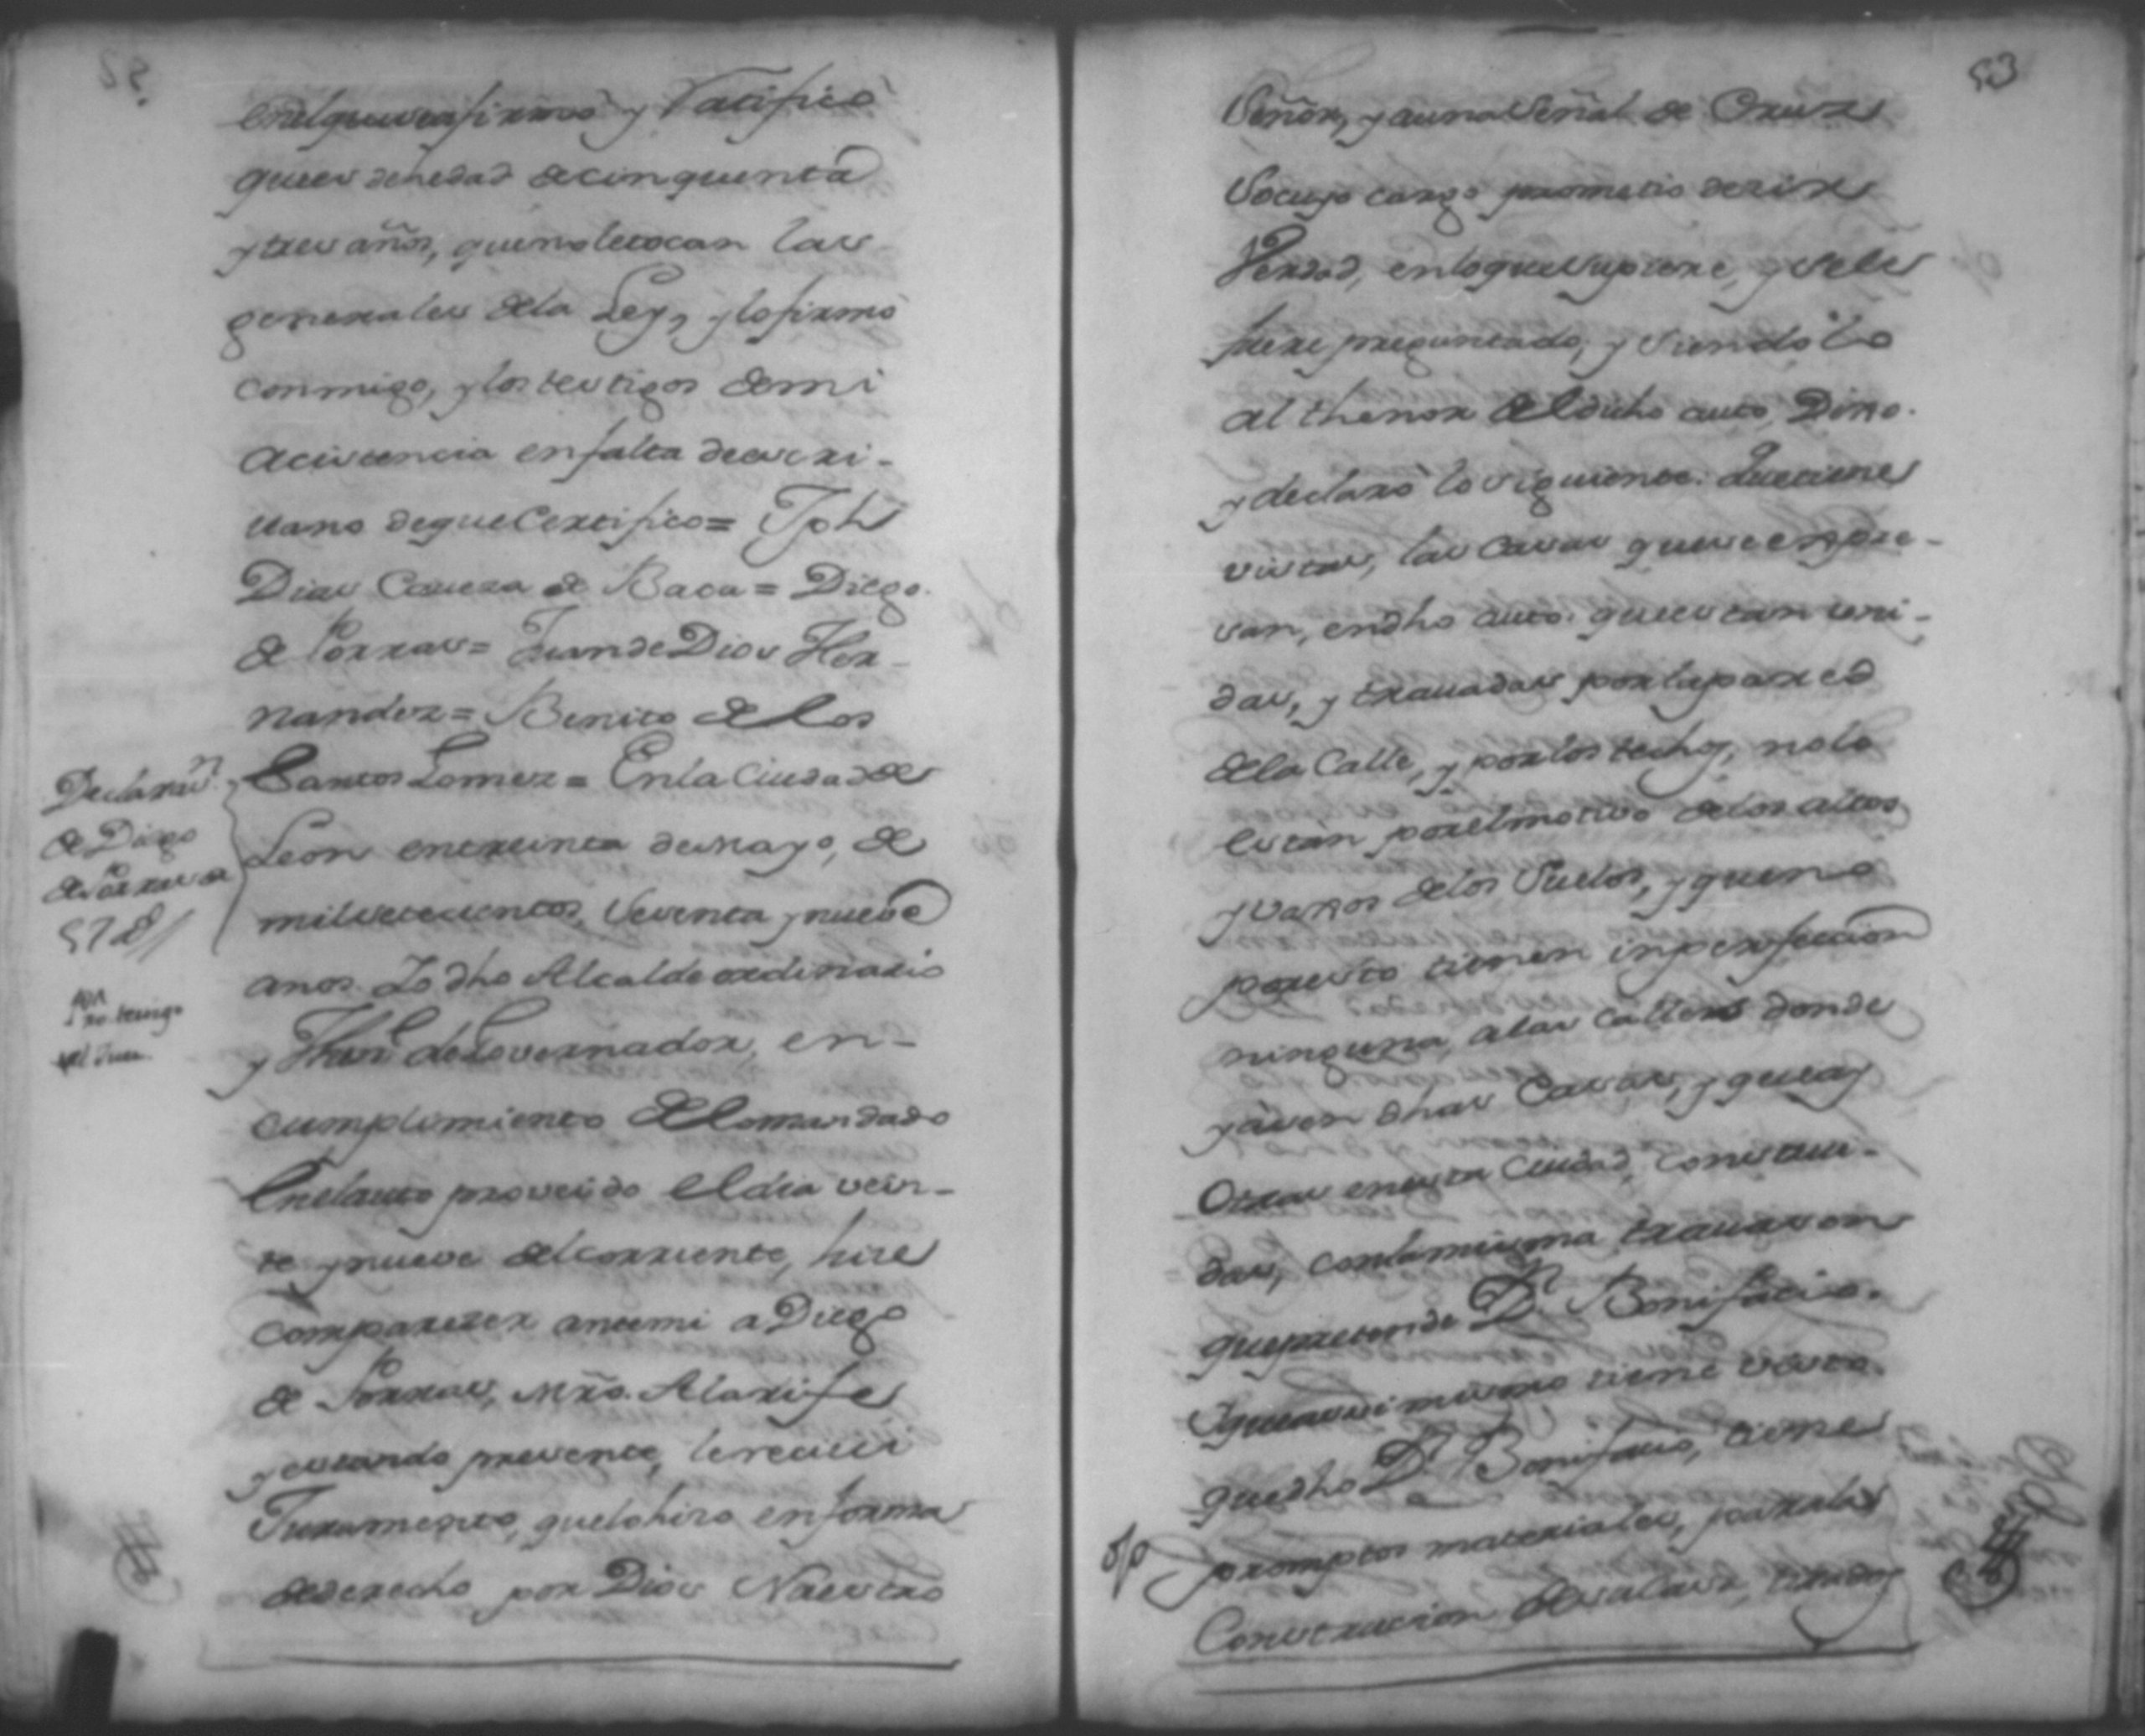 enelqueseafirmo y Ratificó
quees dehedad decinquenta
ytres años, quenoletocan las
generales dela Ley, ylofirmó
conmigo, ylos testigos demi
acistencia enfalta deescri-
uano deque Certifico= Jph
Dias Caueza de Baca= Diego
de Porras= JuandeDios Her-
nandez= Benito delos
Santos Gomez= Enla Ciudadde
Leon entreinta demayo, de
milsetecientos, sesenta ynueve
anos. Yo dho Alcalde ordinario
y Thente deGovernador, en-
cumplimiento delomandado
Enelauto proveido eldia vein-
te ynueve delcorriente, hize
comparezer antemi a Diego
de Porras, Mro. Alarife
yestando presente, lereciui
Juramento, quelohizo enforma
dederecho por Dios Nuestro
Declaraon
de Diego
de Porras de
57 a
no tengo
53
Señor, y aunaseñal de Cruz
socuyo cargo prometio dezir
Verdad, enloquesupiere, y sele
fuere preguntado, y siendolo
al thenor deldicho auto, Dixo.
y declaró lo siguiente: Quetiene
vistas, las Casas queseexpre-
san, endho auto. queestan uni-
das, y trauadas porlapared
dela Calle, y porlos techos, nolo
estan porelmotivo delos altos
yvaxos delos Suelos, yqueno
poresto tienen inperfeccion
ninguna, alas calles donde
yasen dhas Casas, y queay
Otras enesta Ciudad, construi-
das, conlamisma trauason
quepretende Dn. Bonifacio.
Yqueassimismo tiene visto.
quedho Dn Bonifacio, tiene
promptos materiales, paralas
Construcion desalas,